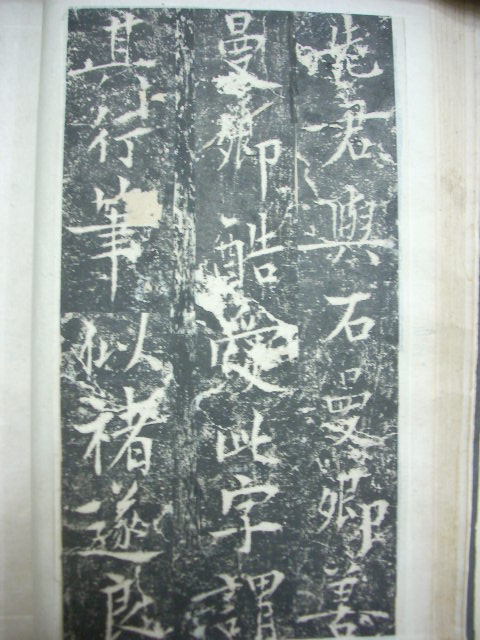 先君與石曼卿善
曼卿酷愛此字謂
其行筆似褚遂良